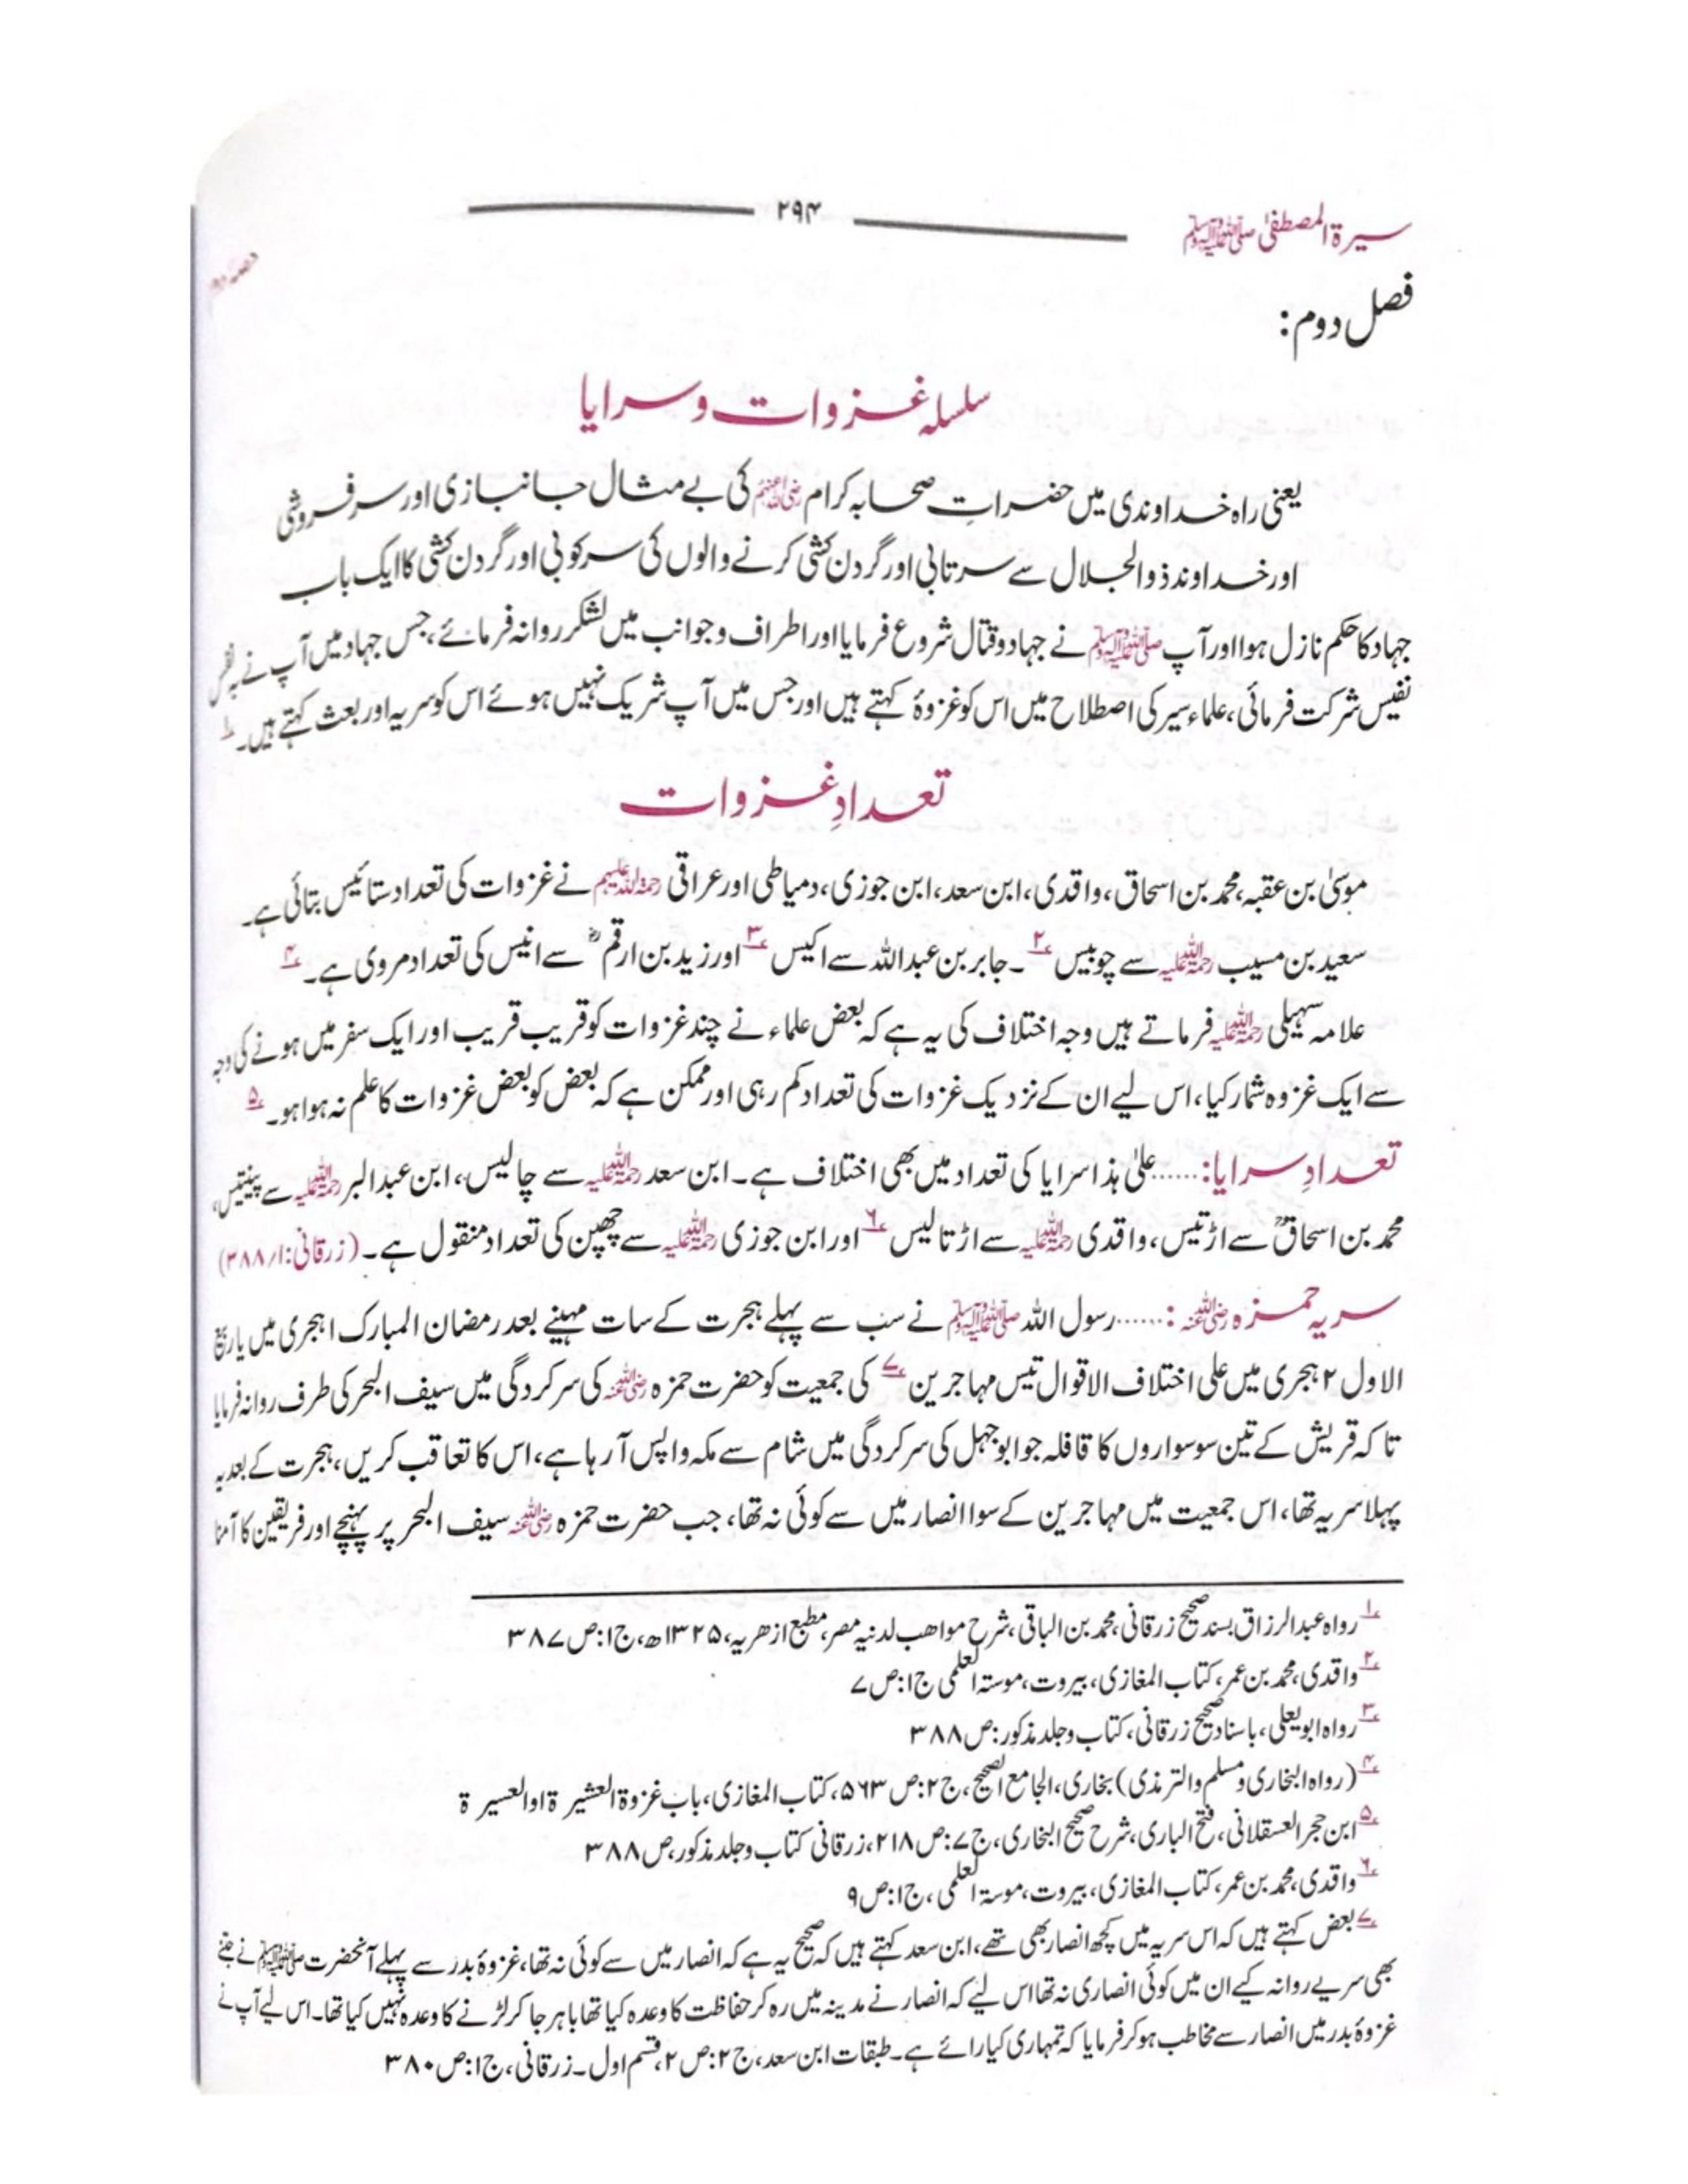 سیرۃ المصطفیٰ ﷺ
۲۹۴
فصل دوم:
سلسلہ غزوات و سرایا
یعنی راہ خداوندی میں حضراتِ صحابہ کرام رضی اللہ عنہم کی بے مثال جانبازی اور سرفروشی
اور خداوند ذوالجلال سے سرتابی اور گردن کشی کرنے والوں کی سرکوبی اور گردن کشی کا ایک باب
جہاد کا حکم نازل ہوا اور آپ ﷺ نے جہاد و قتال شروع فرمایا اور اطراف و جوانب میں لشکر روانہ فرمائے، جس جہاد میں آپ نے بہ نفس
نفیس شرکت فرمائی، علماء سیر کی اصطلاح میں اس کو غزوۂ کہتے ہیں اور جس میں آپ شریک نہیں ہوئے اس کو سریہ اور بعث کہتے ہیں۔ ۱
تعدادِ غزوات
موسیٰ بن عقبہ، محمد بن اسحاق، واقدی، ابن سعد، ابن جوزی، دمیاطی اور عراقی رحمۃ اللہ علیہم نے غزوات کی تعداد ستائیس بتائی ہے۔
سعید بن مسیب رحمۃ اللہ علیہ سے چوبیس ۲۔ جابر بن عبداللہ سے اکیس ۳ اور زید بن ارقم ؓ سے انیس کی تعداد مروی ہے۔ ۴
علامہ سہیلی رحمۃ اللہ علیہ فرماتے ہیں وجہ اختلاف کی یہ ہے کہ بعض علماء نے چند غزوات کو قریب قریب اور ایک سفر میں ہونے کی وجہ
سے ایک غزوہ شمار کیا، اس لیے ان کے نزدیک غزوات کی تعداد کم رہی اور ممکن ہے کہ بعض کو بعض غزوات کا علم نہ ہوا ہو۔ ۵
تعدادِ سرایا:...... علیٰ ہذا سرایا کی تعداد میں بھی اختلاف ہے۔ ابن سعد رحمۃ اللہ علیہ سے چالیس، ابن عبدالبر رحمۃ اللہ علیہ سے پینتیس،
محمد بن اسحاقؒ سے اڑتیس، واقدی رحمۃ اللہ علیہ سے اڑتالیس ۶ اور ابن جوزی رحمۃ اللہ علیہ سے چھپن کی تعداد منقول ہے۔ (زرقانی: ۱/۳۸۸)
سریہ حمزہ رضی اللہ عنہ :...... رسول اللہ ﷺ نے سب سے پہلے ہجرت کے سات مہینے بعد رمضان المبارک ۱ ہجری میں یا ربیع
الاول ۲ ہجری میں علی اختلاف الاقوال تیس مہاجرین ۷ کی جمعیت کو حضرت حمزہ رضی اللہ عنہ کی سرکردگی میں سیف البحر کی طرف روانہ فرمایا
تا کہ قریش کے تین سو سواروں کا قافلہ جو ابوجہل کی سرکردگی میں شام سے مکہ واپس آ رہا ہے، اس کا تعاقب کریں، ہجرت کے بعد یہ
پہلا سریہ تھا، اس جمعیت میں مہاجرین کے سوا انصار میں سے کوئی نہ تھا، جب حضرت حمزہ رضی اللہ عنہ سیف البحر پر پہنچے اور فریقین کا آمنا
۱ رواہ عبدالرزاق بسند صحیح زرقانی، محمد بن الباقی، شرح مواھب لدنیہ مصر، مطبع ازھریہ، ۱۳۲۵ھ، ج۱: ص۳۸۷
۲ واقدی، محمد بن عمر، کتاب المغازی، بیروت، موستہ العلمی ج۱: ص۷
۳ رواہ ابویعلی، باسناد صحیح زرقانی، کتاب وجلد مذکور: ص۳۸۸
۴ (رواہ البخاری ومسلم والترمذی) بخاری، الجامع الصحیح، ج۲: ص۵۶۳، کتاب المغازی، باب غزوۃ العشیر ۃ اوالعسیر ۃ
۵ ابن حجر العسقلانی، فتح الباری، شرح صحیح البخاری، ج۷: ص۲۱۸، زرقانی کتاب وجلد مذکور، ص۳۸۸
۶ واقدی، محمد بن عمر، کتاب المغازی، بیروت، موستہ العلمی، ج۱: ص۹
۷ بعض کہتے ہیں کہ اس سریہ میں کچھ انصار بھی تھے، ابن سعد کہتے ہیں کہ صحیح یہ ہے کہ انصار میں سے کوئی نہ تھا، غزوۂ بدر سے پہلے آنحضرت ﷺ نے جتنے
بھی سریے روانہ کیے ان میں کوئی انصاری نہ تھا اس لیے کہ انصار نے مدینہ میں رہ کر حفاظت کا وعدہ کیا تھا باہر جا کر لڑنے کا وعدہ نہیں کیا تھا۔ اس لیے آپ نے
غزوۂ بدر میں انصار سے مخاطب ہو کر فرمایا کہ تمہاری کیا رائے ہے۔ طبقات ابن سعد، ج۲: ص۲، قسم اول۔ زرقانی، ج۱: ص۳۸۰